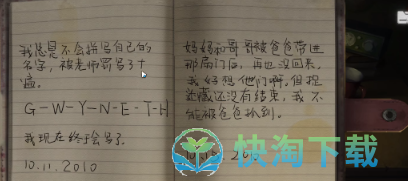 我总是不会拼写自己的
名字，被老师罚写了十
遍。
G-W-Y-N-E-T-H
我现在终于会写了
10.11.2010
妈妈和哥哥被爸爸带进
那扇门后，再也没回来，
我好想他们啊。但捉
迷藏还没有结束，我不
能被爸爸抓到。
快淘下载